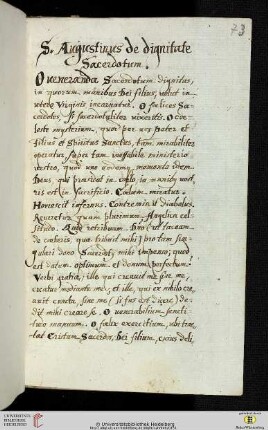 73
S. Augustinus de dignitate
Sacerdotum.
O veneranda Sacerdotum dignitas,
in quorum manibus Dei filius, velut in
utero Virginis incarnatur. O foelices Sa-
cerdotes, si sacerdotaliter vixeritis. O coe-
leste mysterium, quod per vos Pater et
Filius et Spiritus Sanctus, tam mirabiliter
operatur, super tam ineffabile ministerio
uno eodemque momento idem
Deus qui praesidet in coelo, in manibus vest-
ris est in sacrificio. Coelum miratur.
Horrescit infernus. Contremiscit diabolus.
Veneratur quam plurimum, Angelica cel-
situdo. Quid retribuam Domino
qui tribuit mihi prae tam sin-
gulari dono Sacerdotij, mihi impenso; quod
est datum optimum et donum perfectum.
Verbi gratia, ille qui creavit me sine me,
creatur mediante me, et ille, qui ex nihilo cre-
avit cuncta sine me (si fas est dicere) de-
dit mihi creare se. O venerabilem sancti-
tudinem manuum. O felix exercitium,
Sacerdos, Dei filium, cuius deli,
© Universitätsbibliothek Heidelberg